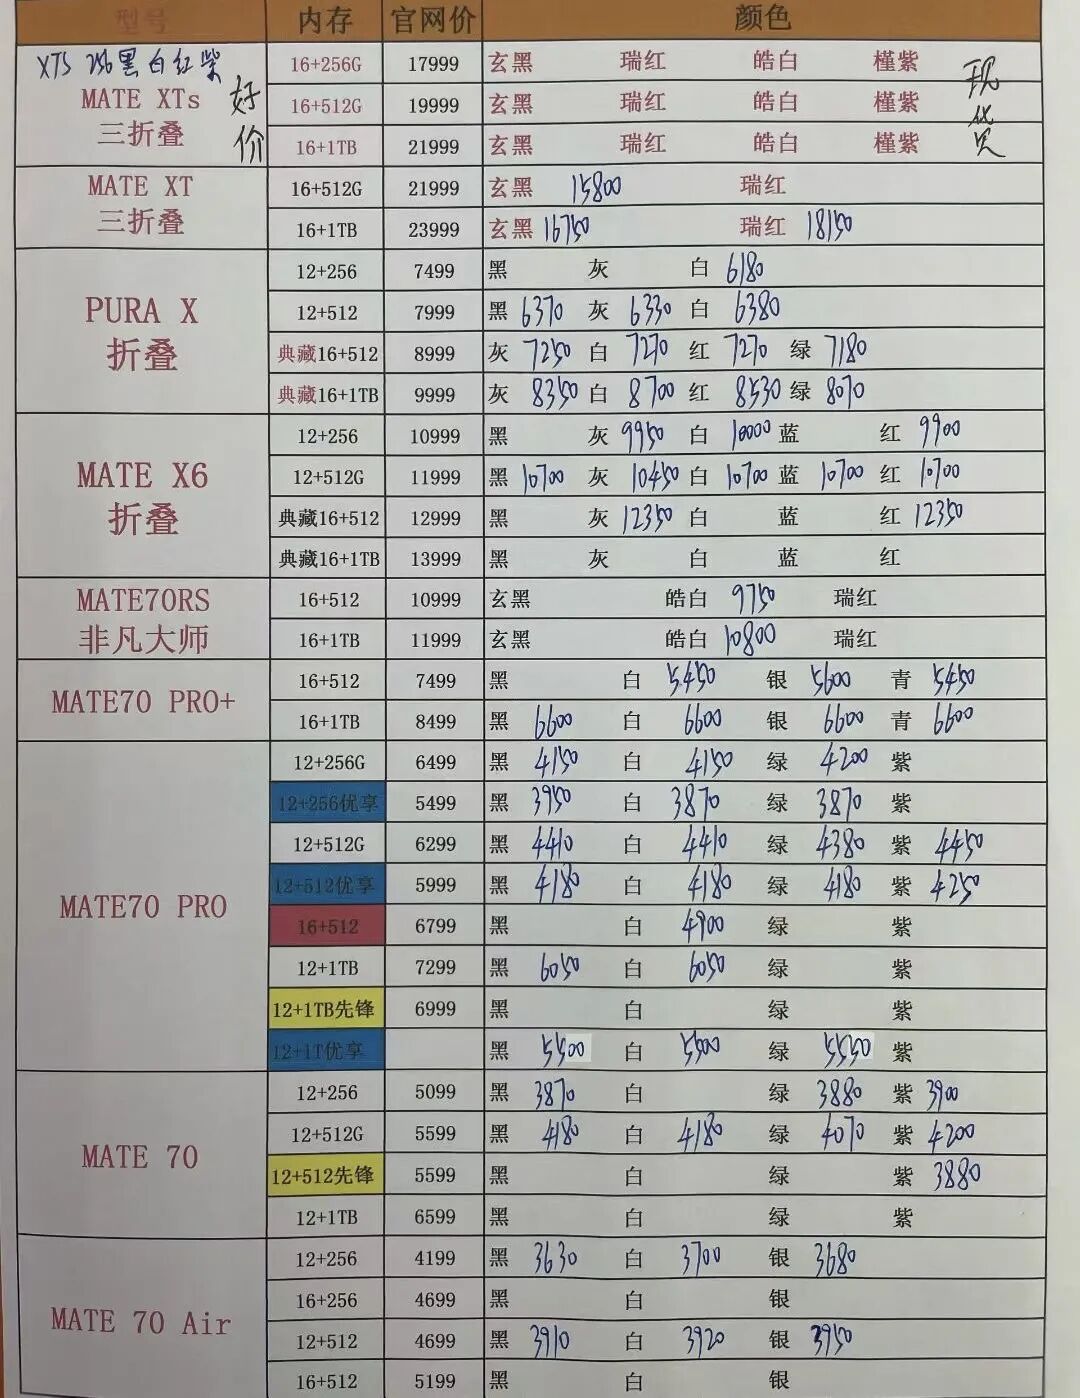 型号 内存 官网价 颜色
XTS 256黑白红紫 好价
MATE XTs 三折叠
16+256G 17999 玄黑 瑞红 皓白 槿紫
16+512G 19999 玄黑 瑞红 皓白 槿紫
16+1TB 21999 玄黑 瑞红 皓白 槿紫
现
MATE XT 三折叠
16+512G 21999 玄黑 15800 瑞红
16+1TB 23999 玄黑 16750 瑞红 18150
PURA X 折叠
12+256 7499 黑 灰 白 6180
12+512 7999 黑 6370 灰 6330 白 6380
典藏16+512 8999 灰 7250 白 7270 红 7270 绿 7180
典藏16+1TB 9999 灰 8350 白 8700 红 8530 绿 8070
MATE X6 折叠
12+256 10999 黑 灰 9950 白 10000 蓝 红 9900
12+512G 11999 黑 10700 灰 10450 白 10700 蓝 10700 红 10700
典藏16+512 12999 黑 灰 12350 白 蓝 红 12350
典藏16+1TB 13999 黑 灰 白 蓝 红
MATE70RS 非凡大师
16+512 10999 玄黑 皓白 9750 瑞红
16+1TB 11999 玄黑 皓白 10800 瑞红
MATE70 PRO+
16+512 7499 黑 白 5450 银 5600 青 5450
16+1TB 8499 黑 6600 白 6600 银 6600 青 6600
MATE70 PRO
12+256G 6499 黑 4150 白 4150 绿 4200 紫
12+256优享 5499 黑 3950 白 3870 绿 3870 紫
12+512G 6299 黑 4410 白 4410 绿 4380 紫 4450
12+512优享 5999 黑 4180 白 4180 绿 4180 紫 4250
16+512 6799 黑 白 4900 绿 紫
12+1TB 7299 黑 6050 白 6050 绿 紫
12+1TB先锋 6999 黑 白 绿 紫
12+1T优享 黑 5500 白 5500 绿 5550 紫
MATE 70
12+256 5099 黑 3870 白 绿 3880 紫 3900
12+512G 5599 黑 4180 白 4180 绿 4070 紫 4200
12+512先锋 5599 黑 白 绿 紫 3880
12+1TB 6599 黑 白 绿 紫
MATE 70 Air
12+256 4199 黑 3630 白 3700 银 3680
16+256 4699 黑 白 银
12+512 4699 黑 3910 白 3920 银 3950
16+512 5199 黑 白 银